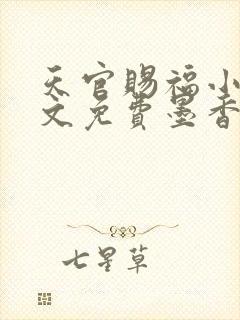 天官赐福小
文免费墨香
七星草